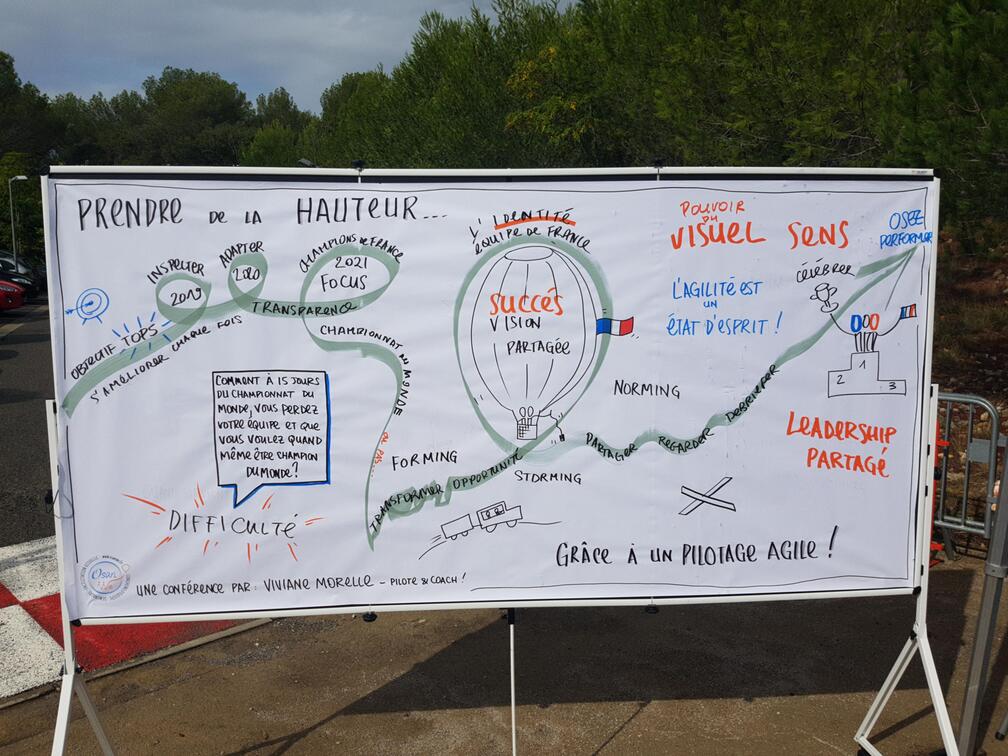 PRENDRE DE LA HAUTEUR...
OBJECTIF TOPS
S'AMÉLIORER CHAQUE FOIS
INSPECTER
2019
ADAPTER
2020
TRANSPARENCE
CHAMPIONS DE FRANCE
2021
FOCUS
CHAMPIONNAT DU MONDE
OU PAS...
COMMENT À 15 JOURS
DU CHAMPIONNAT DU
MONDE, VOUS PERDEZ
VOTRE ÉQUIPE ET QUE
VOUS VOULEZ QUAND
MÊME ÊTRE CHAMPION
DU MONDE?
DIFFICULTÉ
L'IDENTITÉ
ÉQUIPE DE FRANCE
SUCCÉS
VISION
PARTAGÉE
FORMING
STORMING
NORMING
TRANSFORMER OPPORTUNITÉ
PARTAGER REGARDER DEBRIEFER
POUVOIR
DU
VISUEL
SENS
L'AGILITÉ EST
UN
ÉTAT D'ESPRIT !
CÉLÉBRER
OSEZ
PERFORMER
1
2
3
LEADERSHIP
PARTAGÉ
GRÂCE À UN PILOTAGE AGILE !
UNE CONFÉRENCE PAR : VIVIANE MORELLE - PILOTE & COACH !